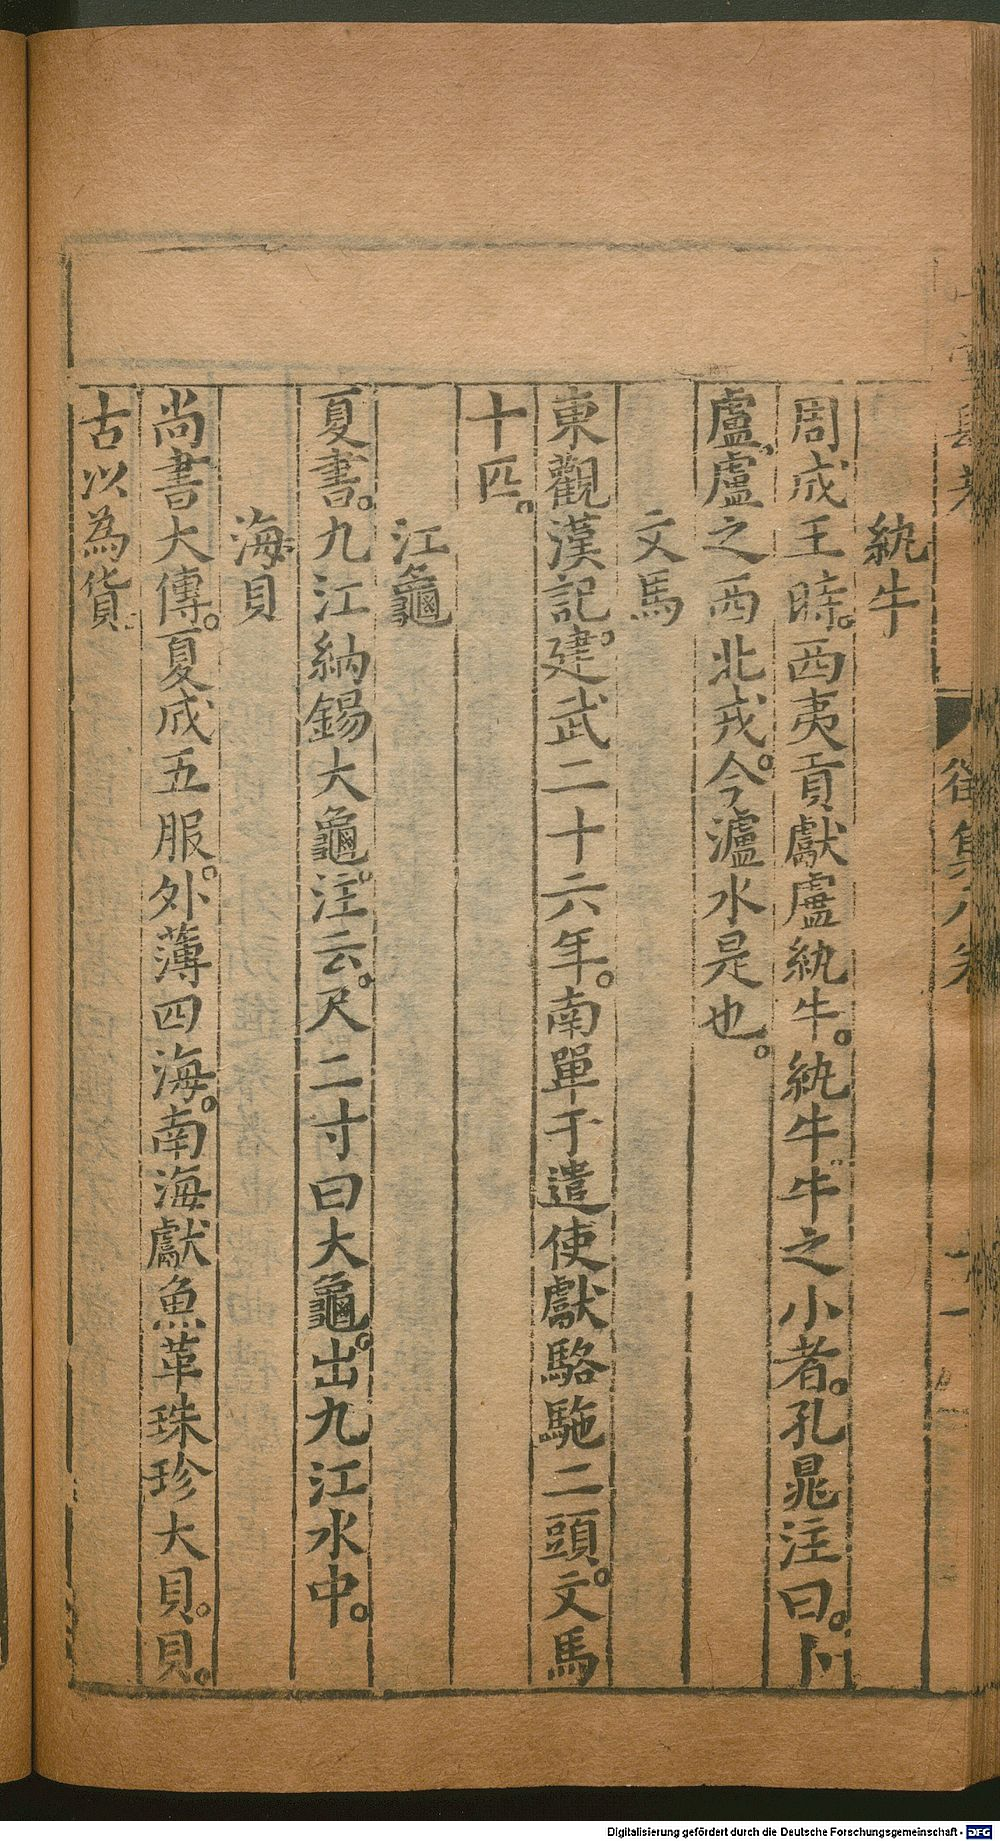 紈牛
周成王時。西夷貢獻盧紈牛。紈牛牛之小者。孔晁注曰。卜
盧。盧之西北戎。今瀘水是也。
文馬
東觀漢記。建武二十六年。南單于遣使獻駱駞二頭。文馬
十匹。
江龜
夏書。九江納錫大龜。注云。尺二寸曰大龜。出九江水中。
海貝
尚書大傳。夏成五服。外薄四海。南海獻魚革珠珍大貝。貝。
古以為貨。
集八卷
Digitalisierung gefördert durch die Deutsche Forschungsgemeinschaft - DFG